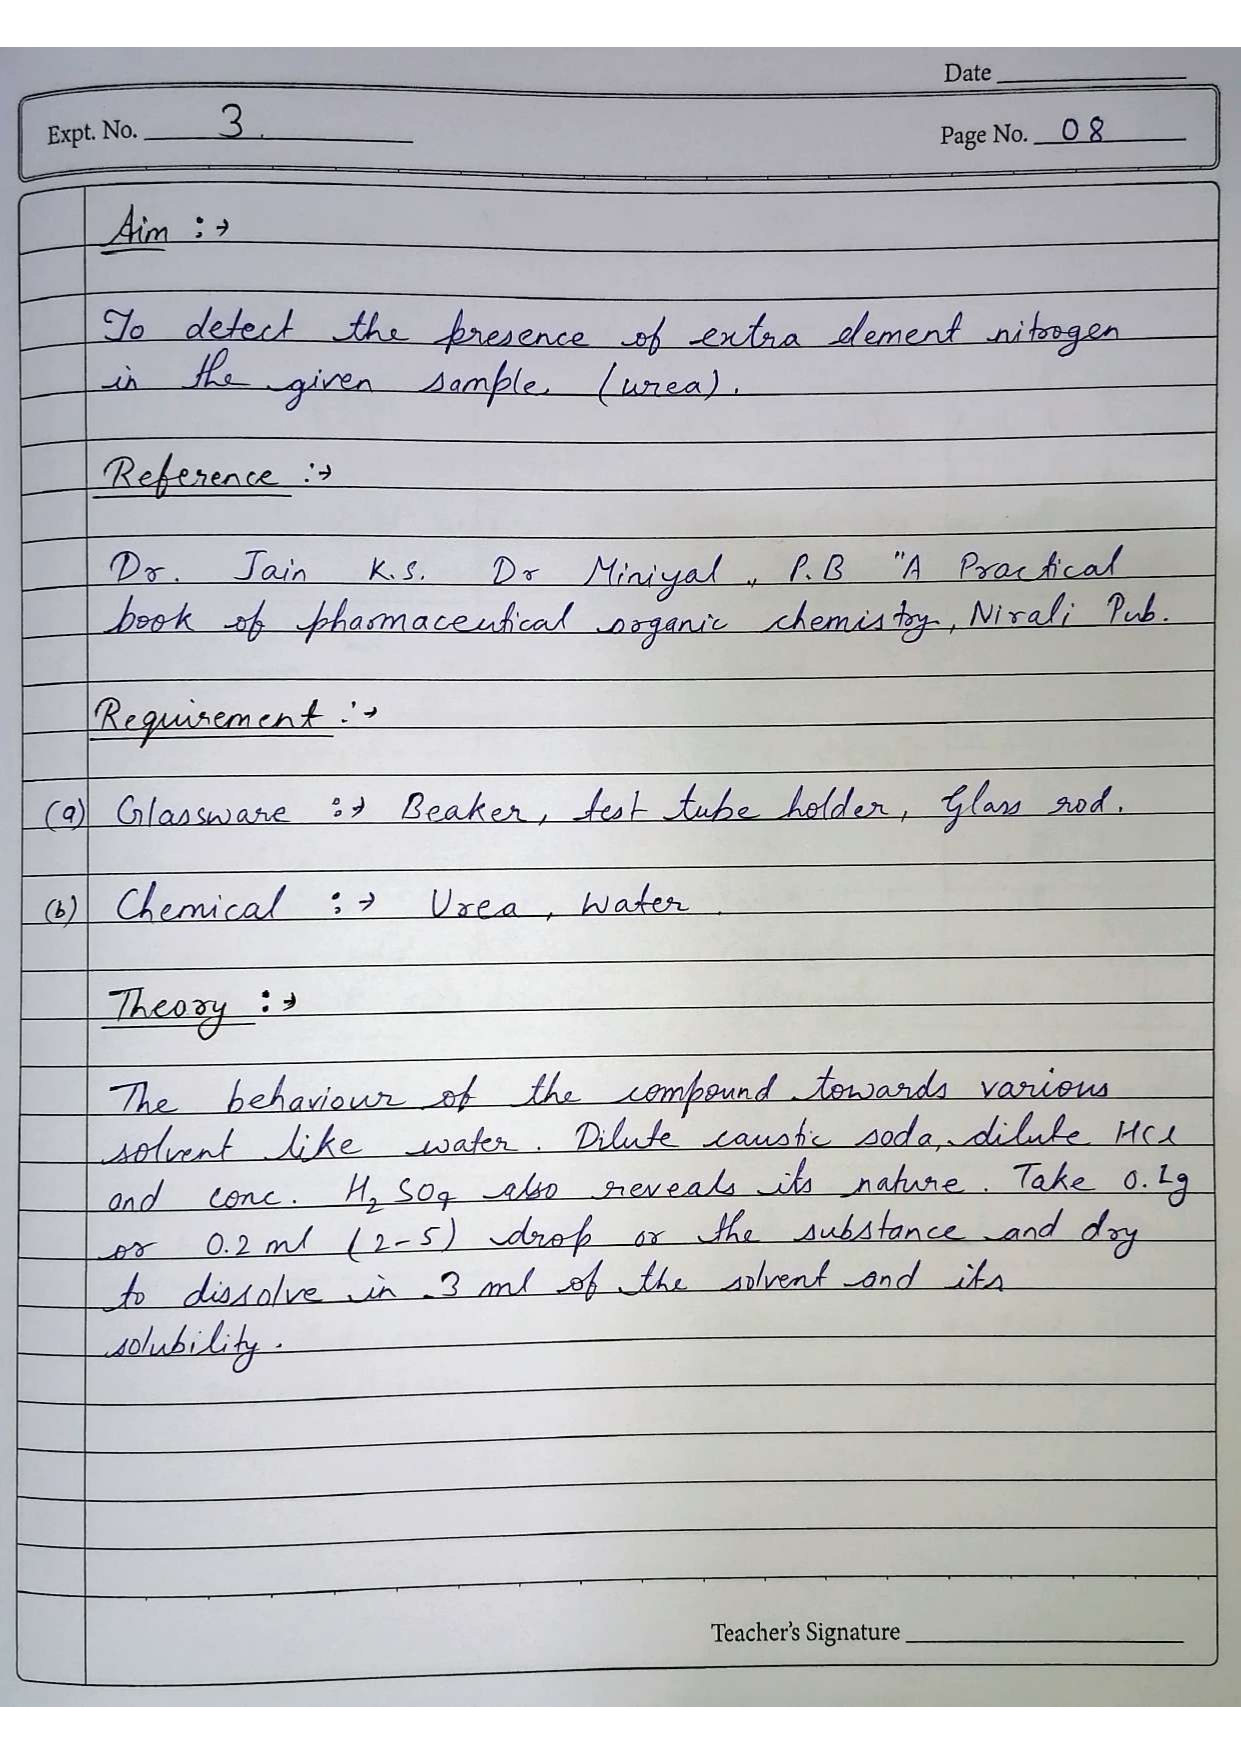 Date
Expt. No. 3.
Page No. 08
Aim :→
To detect the presence of extra element nitrogen
in the given sample. (urea).
Reference :→
Dr. Jain K.S. Dr Miniyal, P.B "A Practical
book of pharmaceutical organic chemistry, Nirali Pub.
Requirement :→
(a) Glassware :→ Beaker, test tube holder, Glass rod.
(b) Chemical :→ Urea, water.
Theory :→
The behaviour of the compound towards various
solvent like water. Dilute caustic soda, dilute HCl
and conc. H₂SO₄ also reveals its nature. Take 0.1g
or 0.2 ml (2-5) drop or the substance and dry
to dissolve in 3 ml of the solvent and its
solubility.
Teacher's Signature